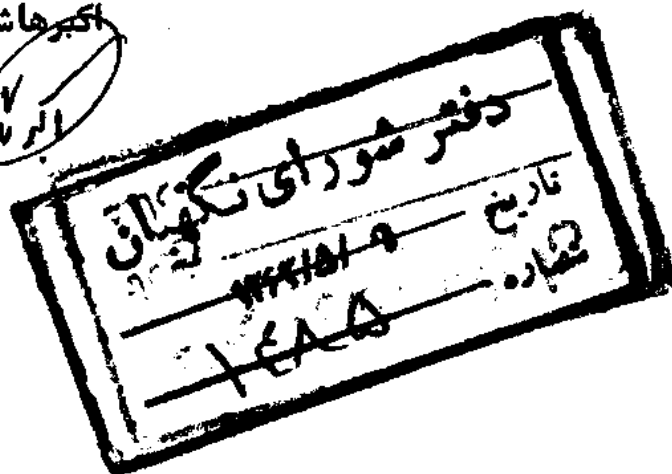 اکبر هاش
دفتر شورای نگهبان
تاریخ ۱۳۶۴/۵/۹
شماره ۱۴۸۵